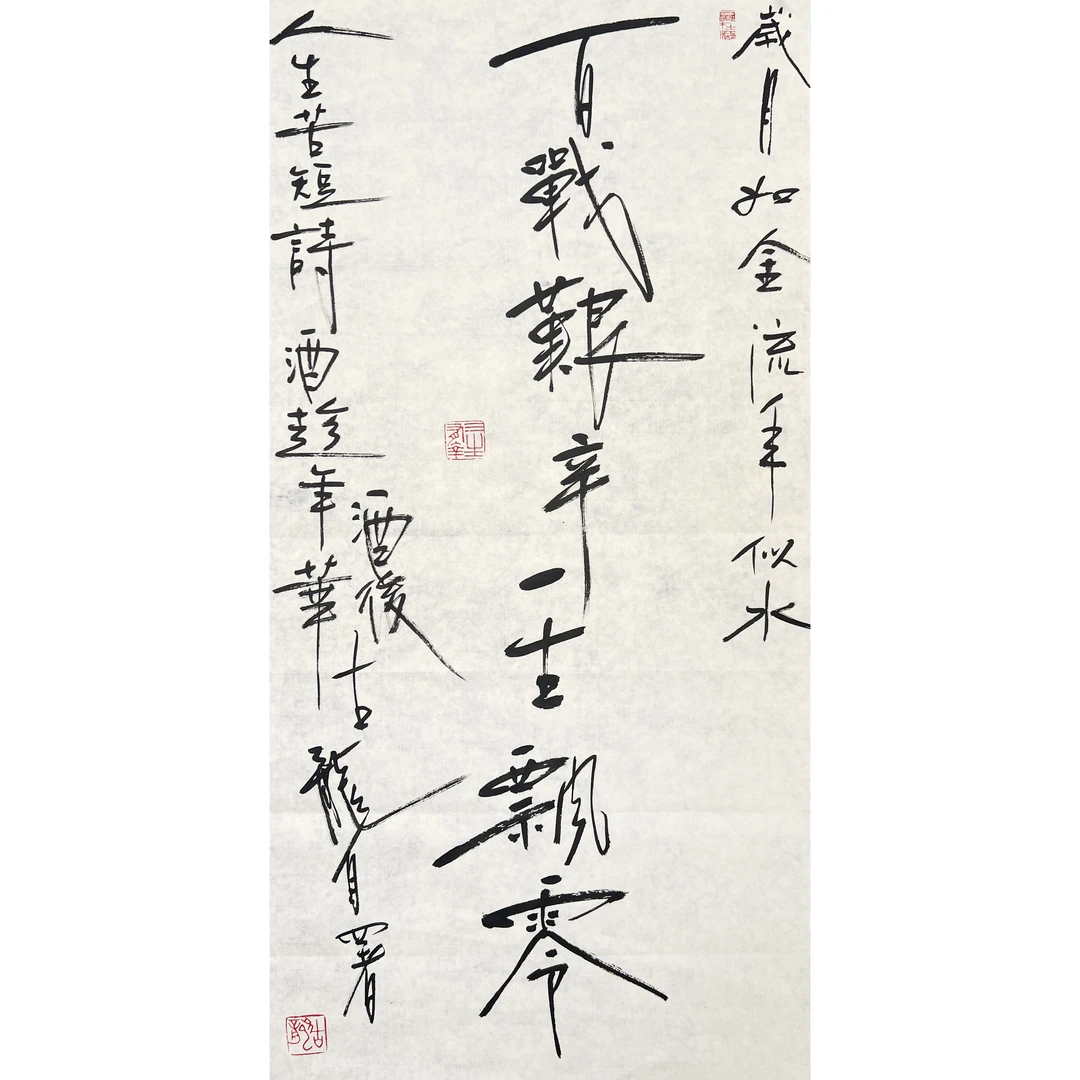 歲月如金流年似水
百戰艱辛一生飄零
人生苦短詩酒趁年華
酒後古龍自署